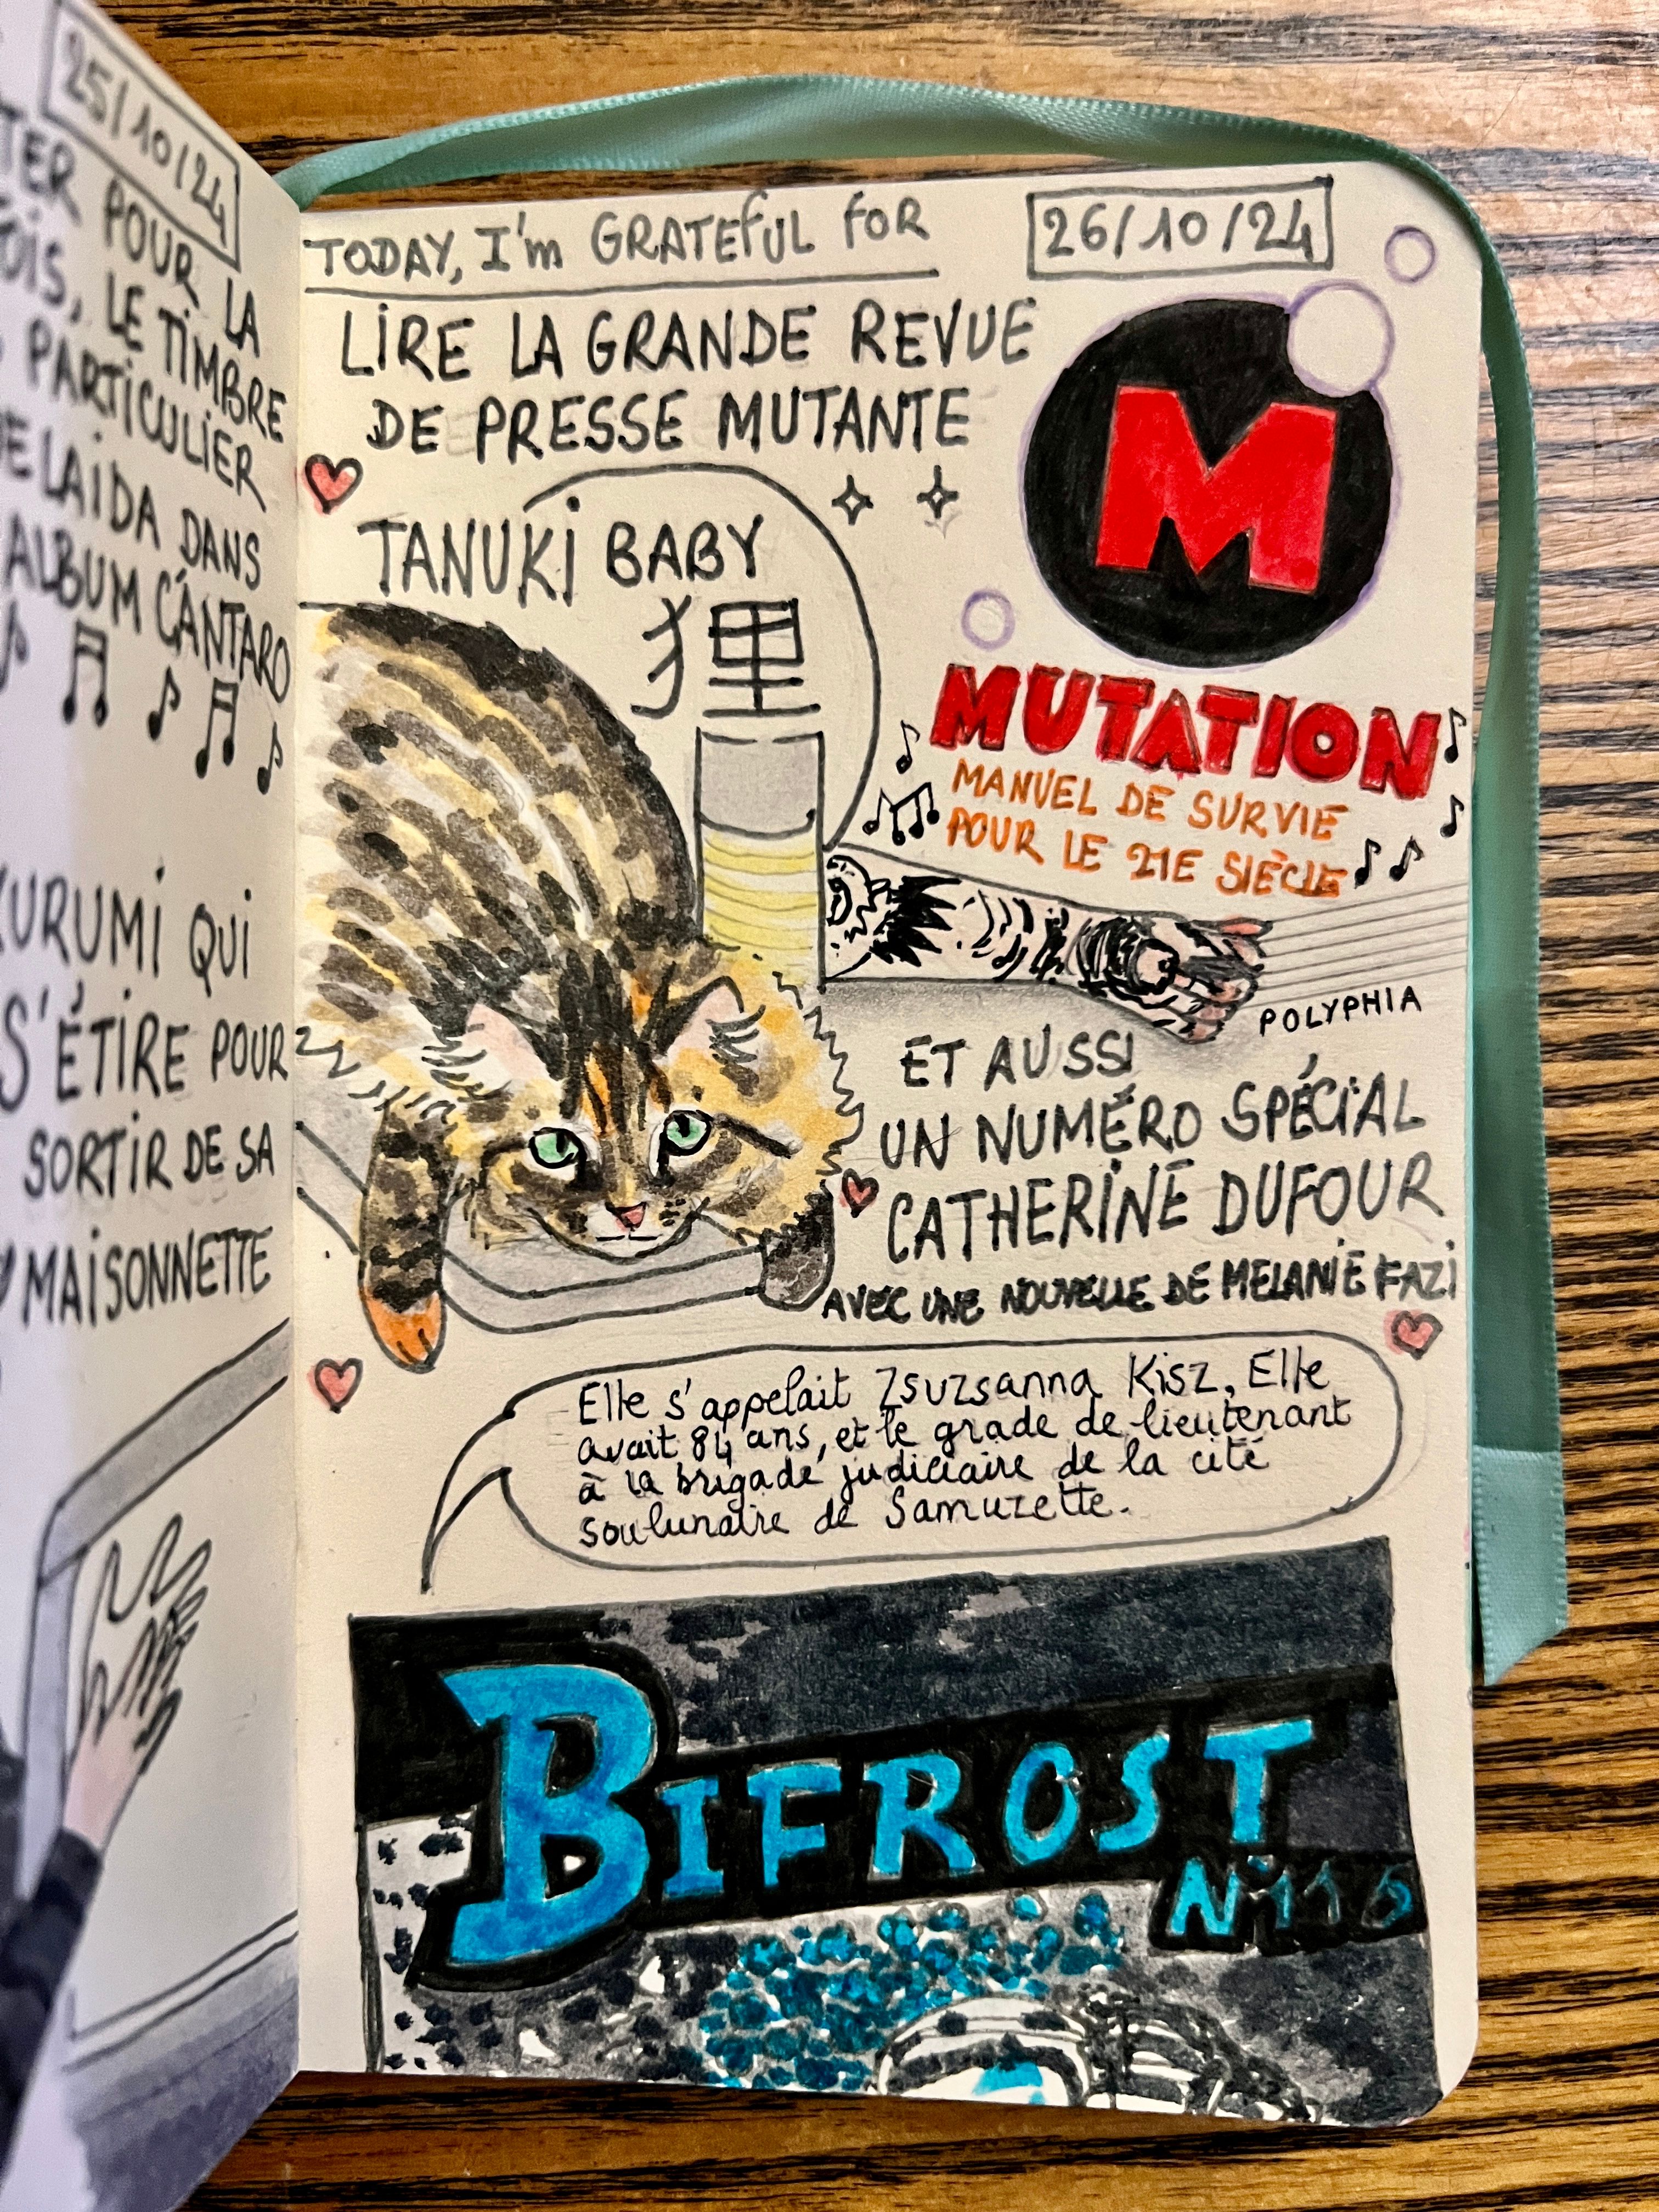 25/10/24
TER POUR LA
OIS, LE TIMBRE
PARTICULIER
ELAIDA DANS
ALBUM CÁNTARO
KURUMI QUI
S'ÉTIRE POUR
SORTIR DE SA
MAISONNETTE
TODAY, I'm GRATEFUL FOR
26/10/24
LIRE LA GRANDE REVUE
DE PRESSE MUTANTE
M
TANUKI BABY
狸
MUTATION
MANUEL DE SURVIE
POUR LE 21E SIÈCLE
POLYPHIA
ET AUSSI
UN NUMÉRO SPÉCIAL
CATHERINE DUFOUR
AVEC UNE NOUVELLE DE MELANIE FAZI
Elle s'appelait Zsuzsanna Kisz, Elle
avait 84 ans, et le grade de lieutenant
à la brigade judiciaire de la cité
soulunaire de Samuzette.
BIFROST
N°116